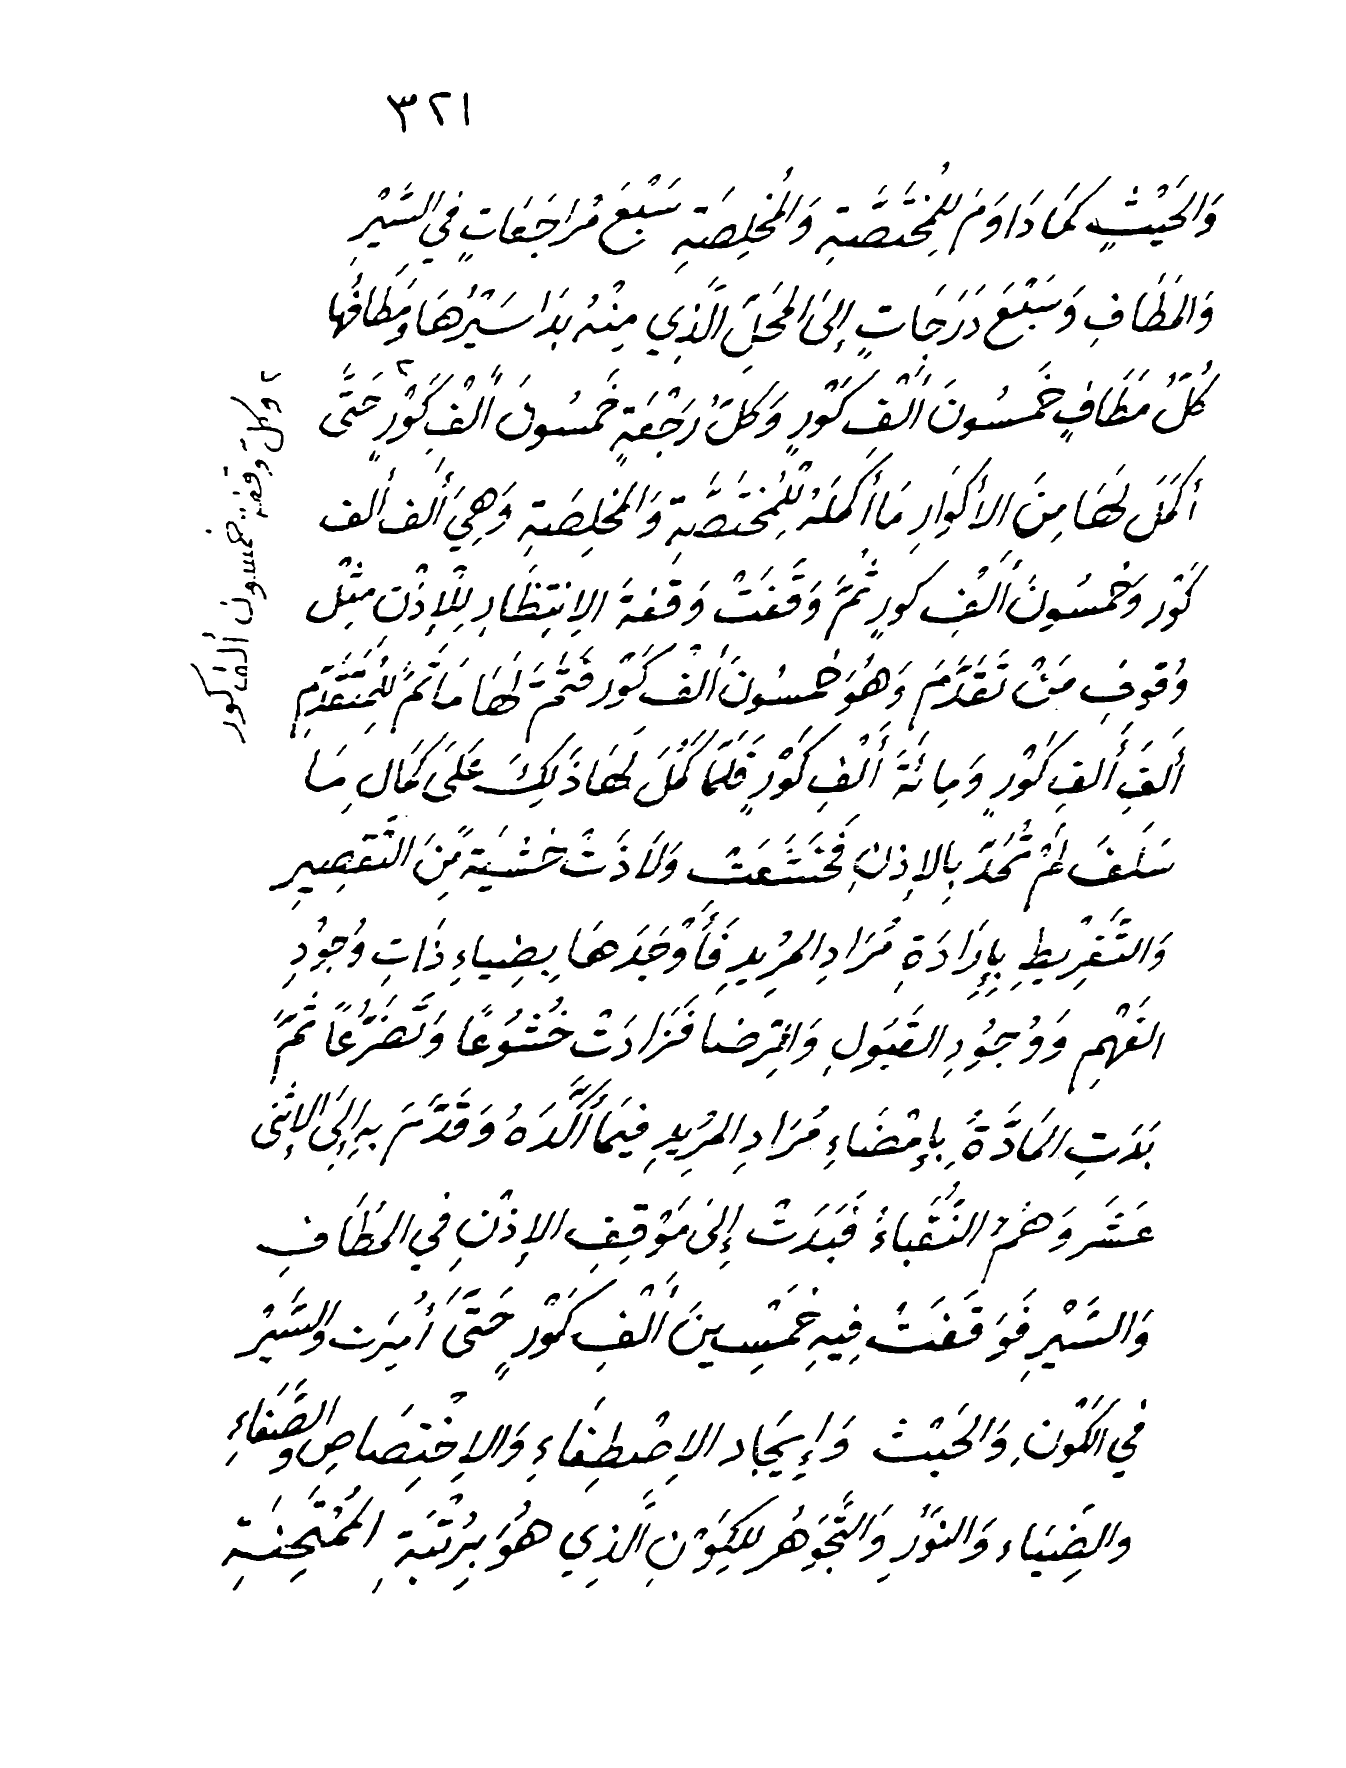 ٣٢١
وَالحَيْثِ كَمَا دَاوَمَ لِلْمُخْتَصَّةِ وَالْمُخْلِصَةِ سَبْعَ مُراجَعَاتٍ فِي السَّيْرِ
وَالمَطَافِ وَسَبْعَ دَرَجَاتٍ إِلَى المَحَلِّ الَّذِي مِنْهُ بَدَا سَيْرُهَا وَمَطَافُها
كُلُّ مَطَافٍ خَمسُونَ أَلْفِ كَوْرٍ وَكُلُّ رَجْعَةٍ خَمسُونَ أَلْفِ كَوْرٍ ٢ حَتَّى
أَكمَلَ لَهَا مِنَ الأَكوَارِ مَا أَكمَلَهُ لِلْمُخْتَصَّةِ وَالمُخلِصَةِ وَهِيَ أَلف أَلف
كَوْر وَخَمسُونَ أَلْفِ كَورٍ ثُمَّ وَقَفَتْ وَقفَةَ الاِنتِظَارِ لِلإِذْنِ مِثْل
وُقوفِ مَنْ تَقَدَّمَ وَهُوَ خَمسُونَ أَلْف كَوْر فَتَمَّ لَهَا مَا تَمَّ لِلْمُتَقَدِّمِ
أَلفَ أَلفِ كَوْرٍ وَمِائَةَ أَلْفِ كَوْرٍ فَلَمَّا كَمُلَ لَهَا ذَلِكَ عَلَى كَمَالِ مَا
سَلَفَ لَمْ تُحَدَّ بِالإِذنِ فَخَشَعَتْ وَلَاذَتْ خَشْيَةً مِنَ التَّقصِيرِ
وَالتَّفْرِيطِ بِإِرَادَةِ مُرَادِ المُرِيدِ فَأَوْجَدَهَا بِضِياءِ ذَاتِ وُجُودِ
الفَهْمِ وَوُجُودِ القَبُولِ وَالرِّضا فَزَادَتْ خُشُوعًا وَتَضَرُّعًا ثُمَّ
بَدَتِ المَادَّةُ بِإِمْضَاءِ مُرَادِ المُرِيدِ فِيمَا أَكَّدَهُ وَقَدَّمَ بِهِ إِلَى الإِثْنَى
عَشَر وَهُمْ النُّقَباءُ فَبَدَتْ إِلَى مَوْقِفِ الإِذْنِ فِي المَطَافِ
وَالسَّيْرِ فَوَقَفَتْ فِيهِ خَمْسِينَ أَلْفِ كَوْرٍ حَتَّى أُمِرَت والسَّيْرْ
فِي الكَوْنِ وَالحَيْث وَإِيجَاد الاِصْطِفَاءِ وَالاِخْتِصَاصِ وَالصَّفَاءِ
والضِّيَاء وَالنُّورِ وَالتَّجَوهُر لِلكَوْنِ الَّذِي هُوَ بِرُتْبَةِ المُمْتَحِنَةِ
٢ وكلّ وقفة خمسون ألف كور